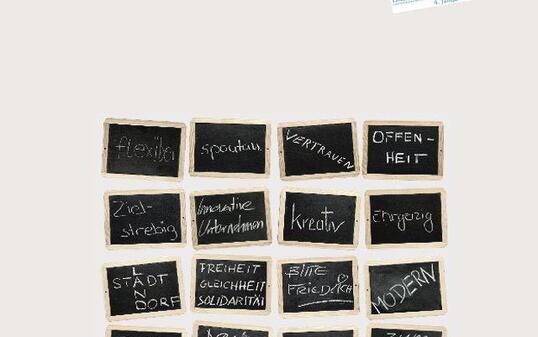 flexibel
spontan
VERTRAUEN
OFFEN-
HEIT
Ziel-
strebig
Innovative
Unternehmen
kreativ
Ehrgeizig
STADT
LAND
DORF
FREIHEIT
GLEICHHEIT
SOLIDARITÄT
BITTE
FRIEDLICH
MODERN